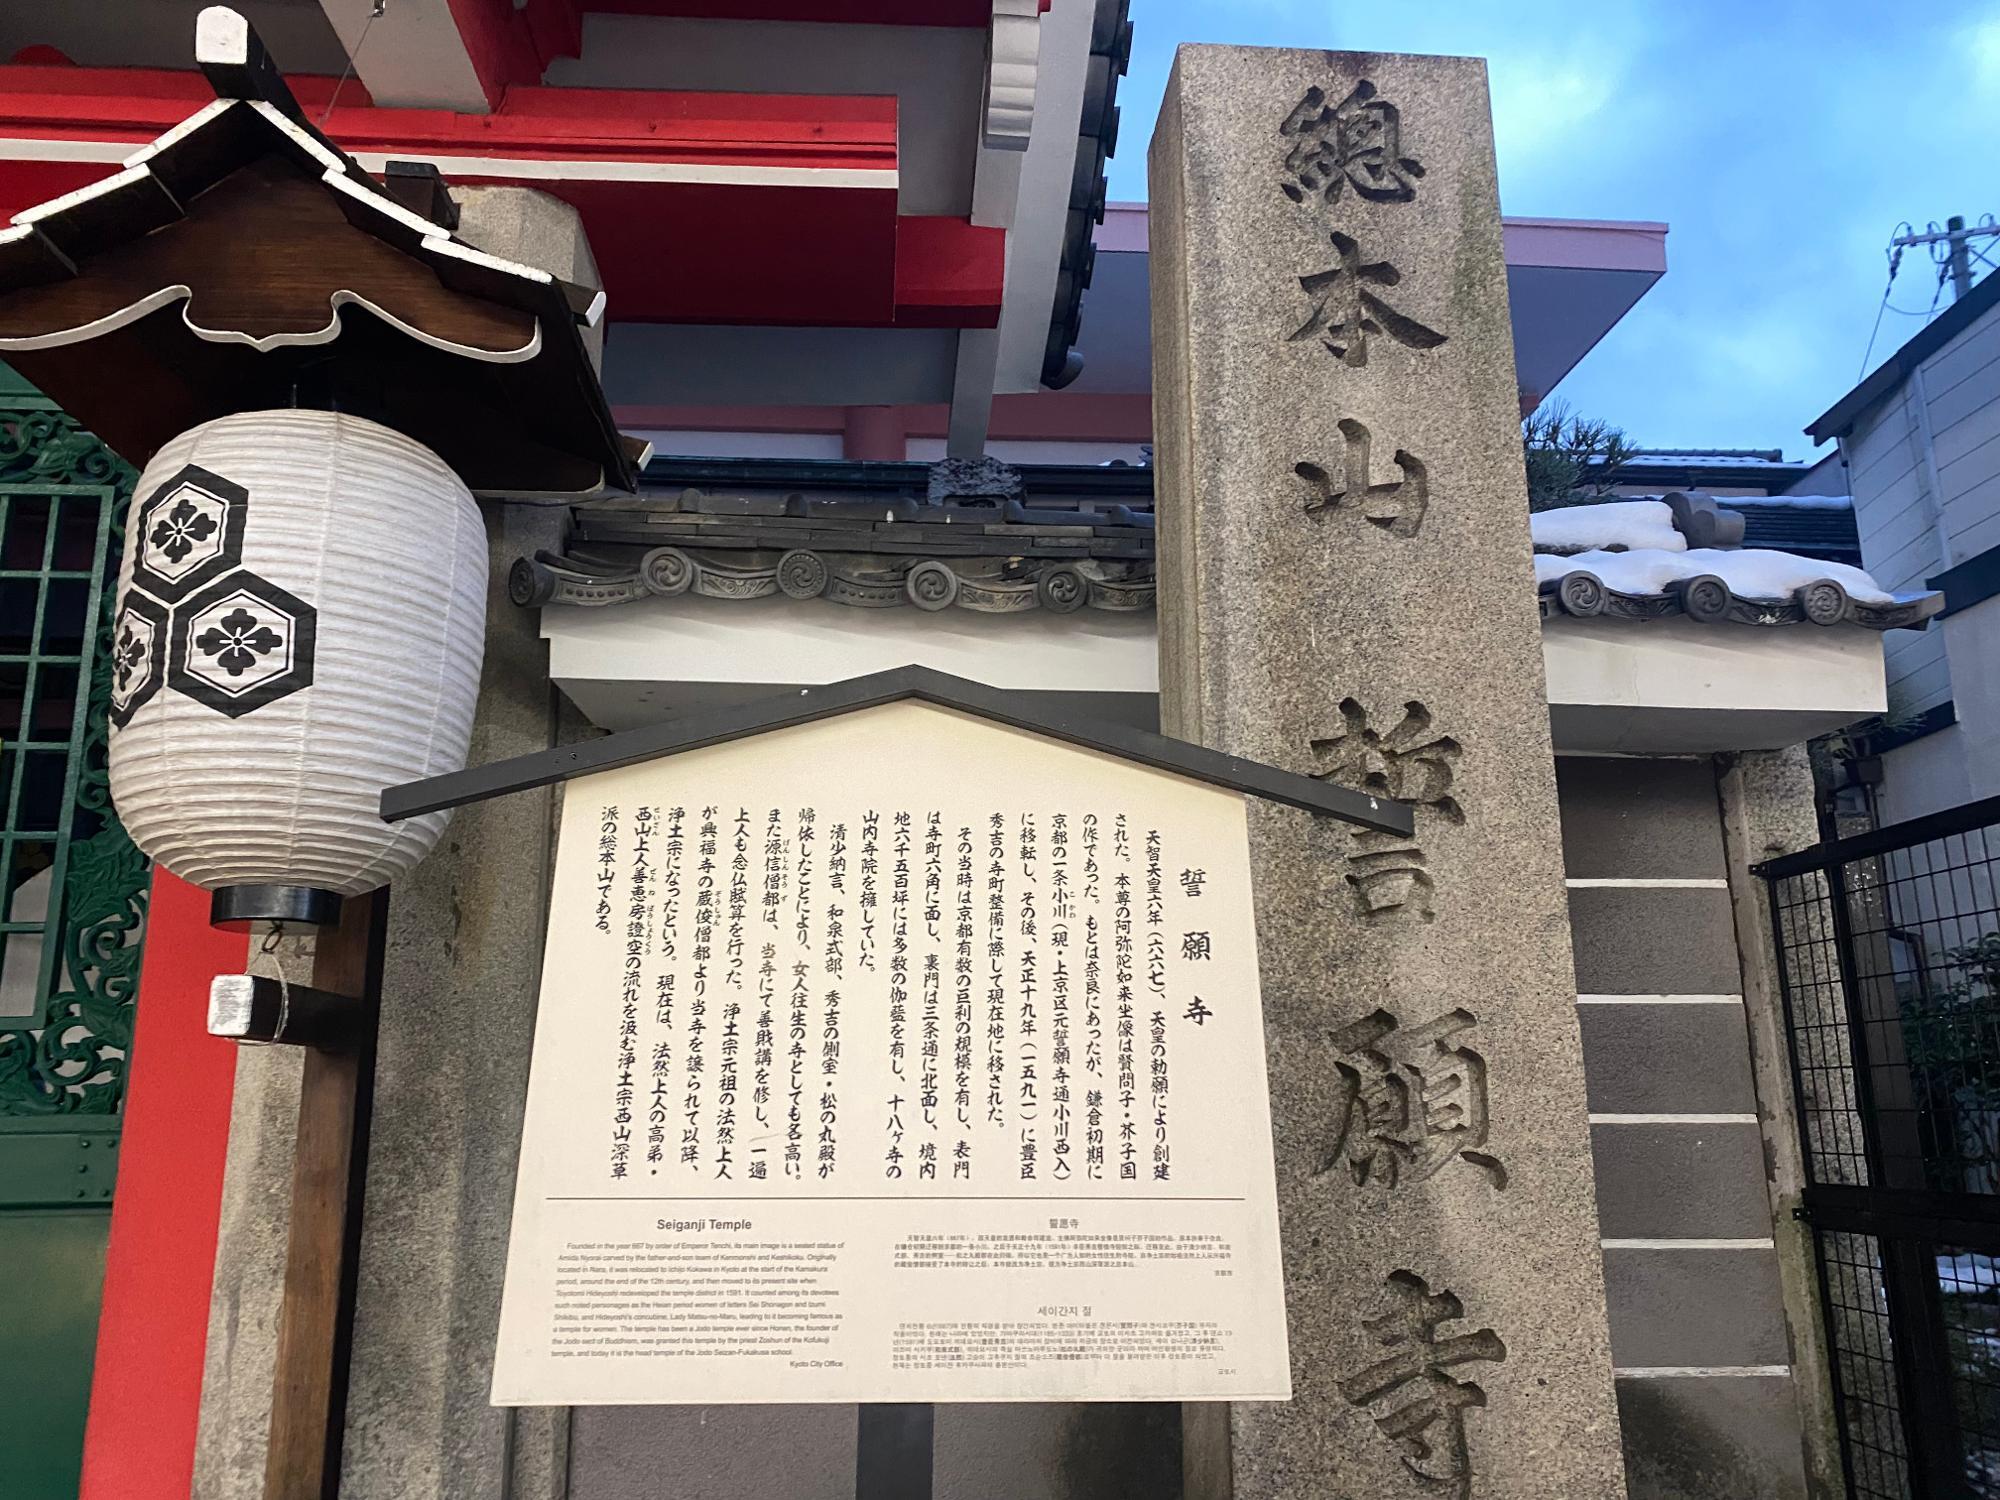 總本山誓願寺
誓願寺
天智天皇六年（六六七）、天皇の勅願により創建
された。本尊の阿弥陀如来坐像は賢問子・芥子国
の作であった。もとは奈良にあったが、鎌倉初期に
京都の一条小川（現・上京区元誓願寺通小川西入）
に移転し、その後、天正十九年（一五九一）に豊臣
秀吉の寺町整備に際して現在地に移された。
その当時は京都有数の巨刹の規模を有し、表門
は寺町六角に面し、裏門は三条通に北面し、境内
地六千五百坪には多数の伽藍を有し、十八ヶ寺の
山内寺院を擁していた。
清少納言、和泉式部、秀吉の側室・松の丸殿が
帰依したことにより、女人往生の寺としても名高い。
また源信僧都は、当寺にて善財講を修し、一遍
上人も念仏賦算を行った。浄土宗元祖の法然上人
が興福寺の蔵俊僧都より当寺を譲られて以降、
浄土宗になったという。現在は、法然上人の高弟・
西山上人善恵房證空の流れを汲む浄土宗西山深草
派の総本山である。
Seiganji Temple
Founded in the year 667 by order of Emperor Tenchi, its main image is a seated statue of
Amida Nyorai carved by the father-and-son team of Kenmonshi and Keshikoku. Originally
located in Nara, it was relocated to Ichijo Kokawa in Kyoto at the start of the Kamakura
period, around the end of the 12th century, and then moved to its present site when
Toyotomi Hideyoshi redeveloped the temple district in 1591. It counted among its devotees
such noted personages as the Heian period women of letters Sei Shonagon and Izumi
Shikibu, and Hideyoshi's concubine, Lady Matsu-no-Maru, leading to it becoming famous as
a temple for women. The temple has been a Jodo temple ever since Honen, the founder of
the Jodo sect of Buddhism, was granted this temple by the priest Zoshun of the Kofukuji
temple, and today it is the head temple of the Jodo Seizan-Fukakusa school.
Kyoto City Office
誓愿寺
京都市
세이간지 절
교토시